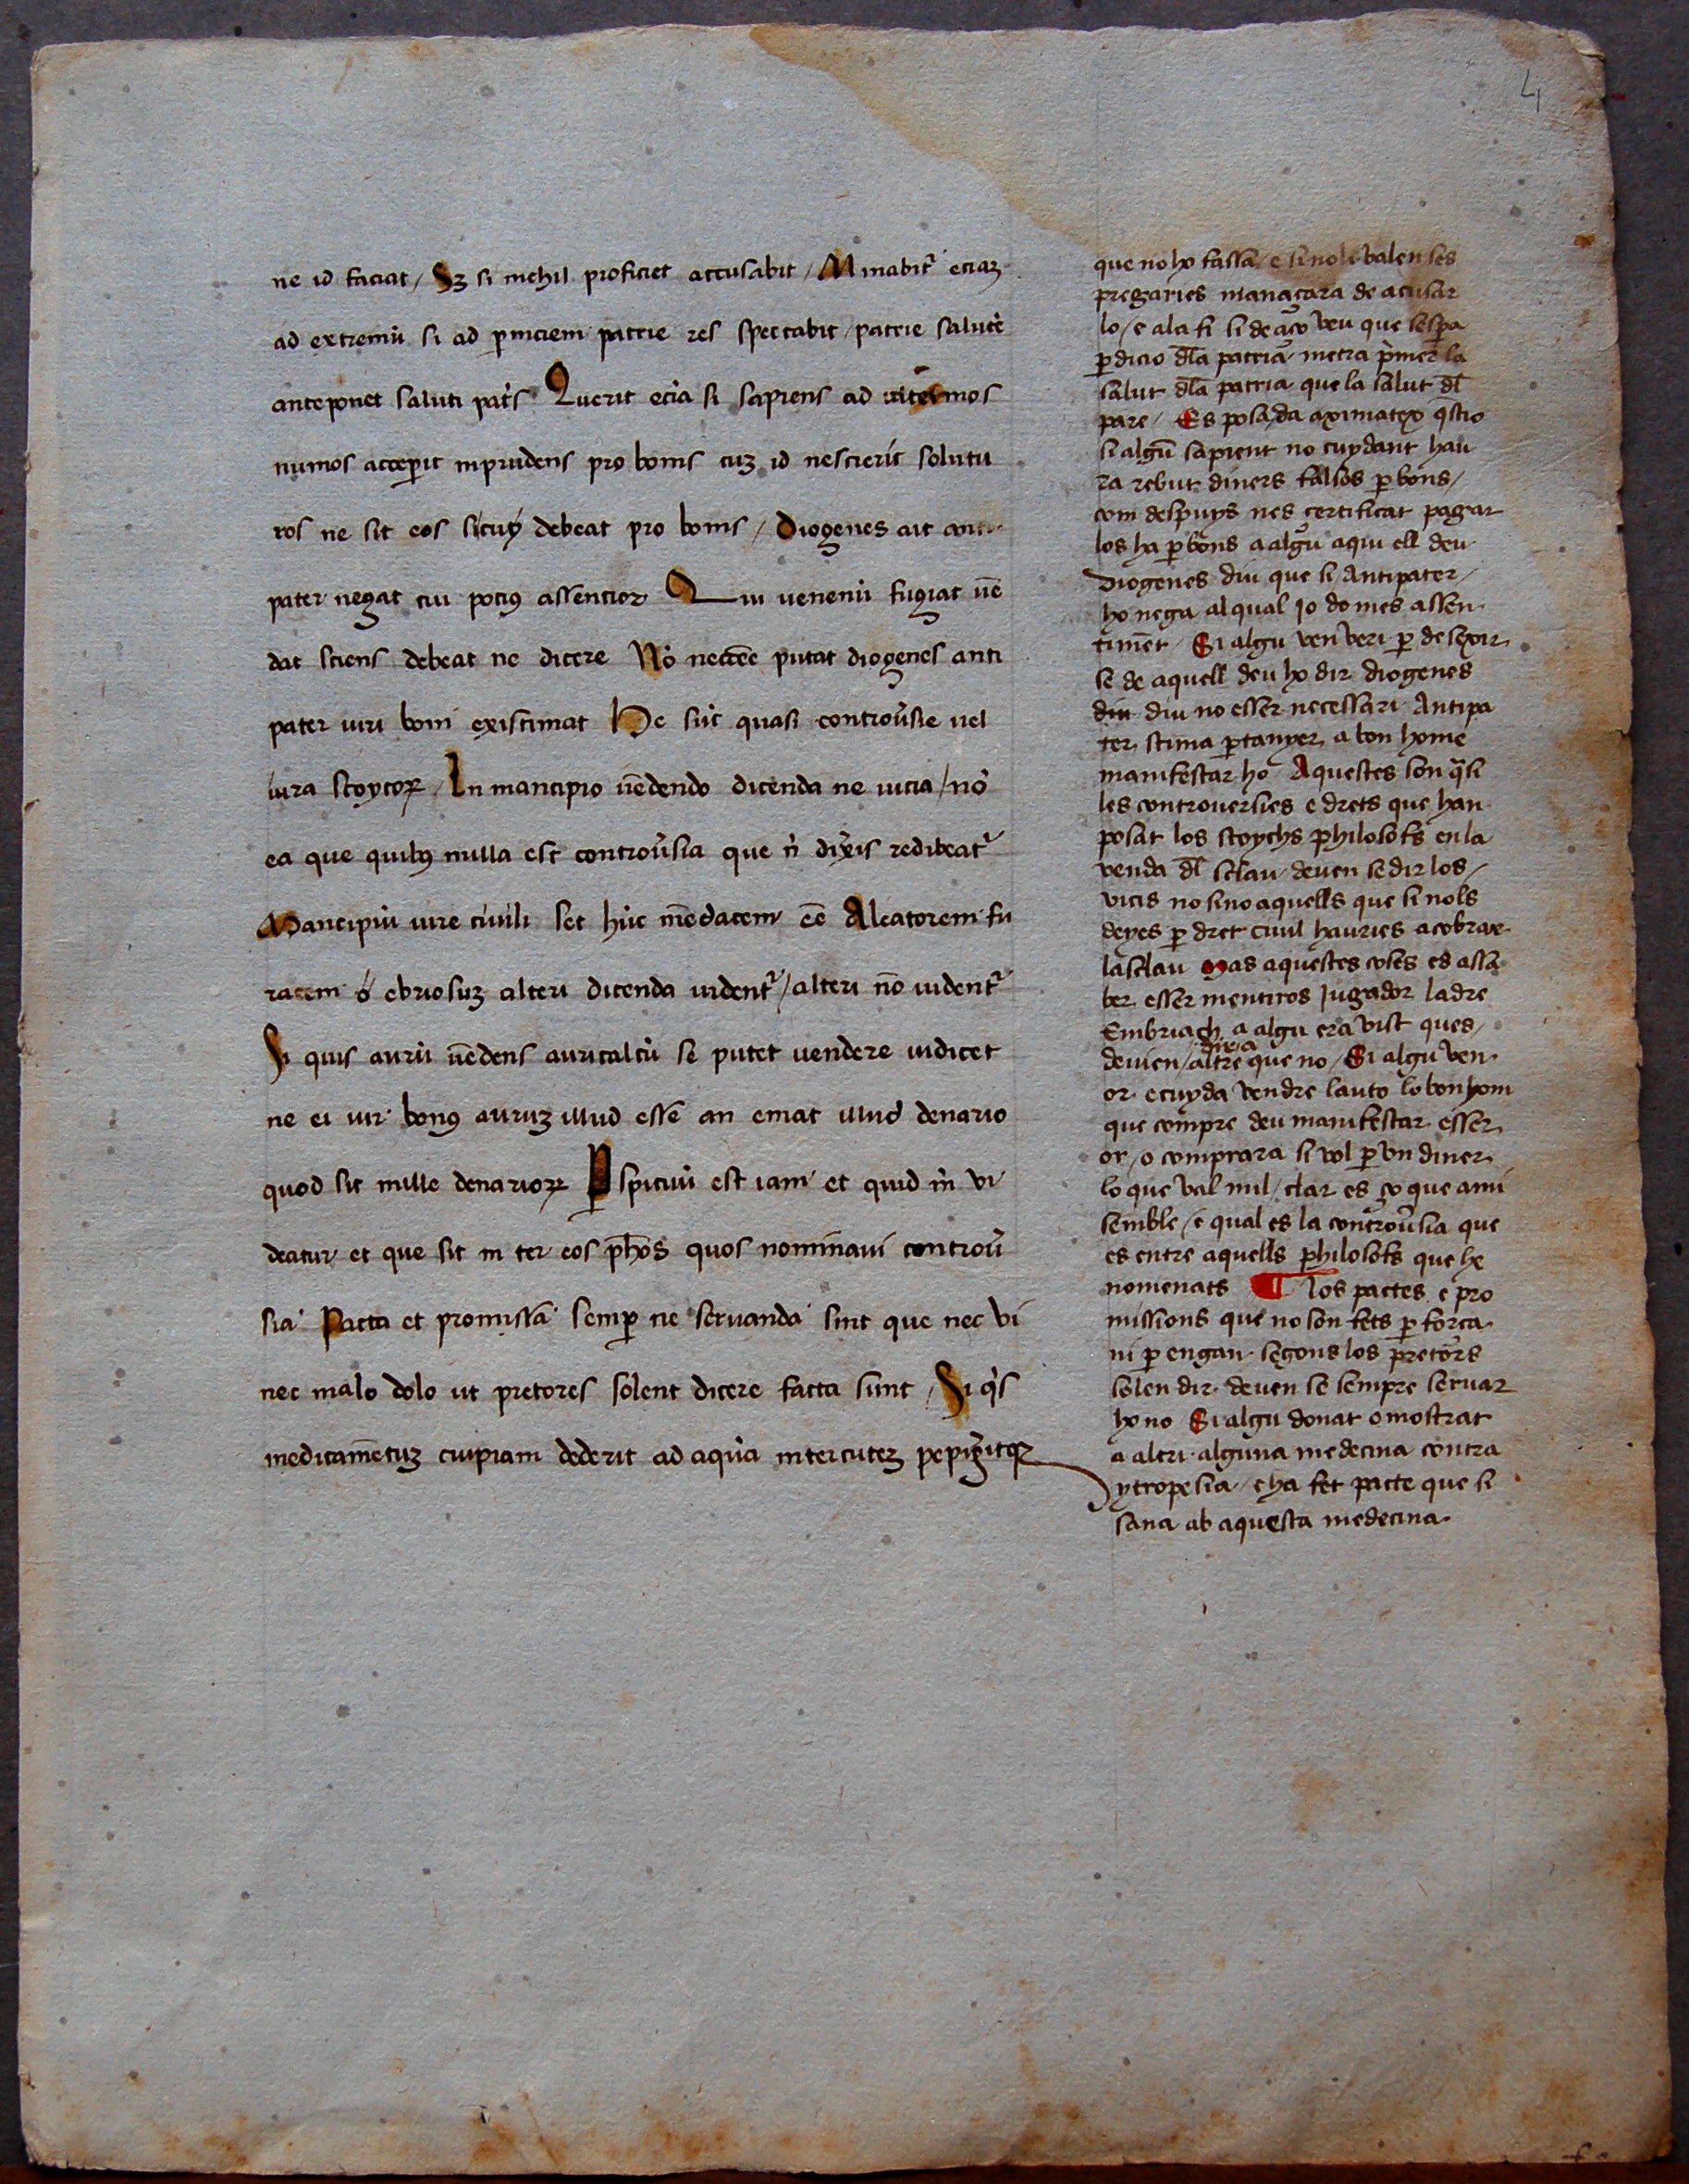 4
ne id faciat / Sꝫ si nichil proficiet accusabit / Minabit᷑ eciaꝫ
ad extremū si ad ꝑniciem patrie res spectabit / patrie salutē
anteponet saluti pat's Querit eciā si sapiens ad
numos acceperit inprudens pro bonis cuꝫ id nescierit solutu
ros ne sit eos debeat pro bonis / Diogenes ait anti
pater negat cui pociꝰ assencior Qui venenū fugiat vē
dat sciens debeat ne dicere Nō necc̄ē putat diogenes anti
pater viri boni existimat He sūt quasi controu̓sie uel
iura stoycoꝝ / In mancipio vēdendo dicenda ne vicia / nō
ea que quibꝰ nulla est controu̓sia que nͥ redibeat᷑
Mancipiū iure ciuili set hūc mēdacem ēē Aleatorem fu
racem ó ebriosuꝫ alteri dicenda videnť / alteri nō videnť
Si quis aurū vēdens auricalcū se putet vendere iudicet
ne ei vir bonꝰ auruꝫ illud esse an emat illud denario
quod sit mille denarioꝝ Ꝑspicuū est iam et quid m̓ vi
deatur et que sit in ter eos ph̄os quos nominaui controu̓
sia Pacta et promissa semꝑ ne seruanda sint que nec vi
nec malo dolo ut pretores solent dicere facta sunt / Si q's
medicamētuꝫ cuipiam dederit ad aquā intercuteꝫ pepigeritqꝫ
que no ho fassa / e si no li valen ses
pregaries manaçara de acusar
lo / e ala fi si de aço veu que sespa
ꝑdicio dl̄a patria metra pͥmer la
salut dl̄a patria que la salut dl̄
pare / Es posada aximatex qstio
si algū sapient no cuydant hau
ra rebut diners falsos ꝑ bons /
com despuys nes certificat pagar
los ha ꝑ bons a algū aqui ell deu
Diogenes diu que si Antipater /
ho nega al qual jo do mes assen
timēt Si algu ven veri ꝑ desexir
se de aquell deu ho dir diogenes
diu diu no esser necessari Antipa
ter stima ꝑtanyer a bon home
manifestar ho Aquestes son q̄si
les controuersies e drets que han
posat los stoychs philosofs en la
venda dl̄ sclau deuen se dir los /
vicis no sino aquells que si nols
deyes ꝑ dret ciuil hauries a cobrar
lasclau Mas aquestes coses es assa
ber esser mentiros Jugador ladre
Embriach a algu era vist ques /
dir a
deuen / altre que no / Si algu ven
or e cuyda vendre lauto lo bon hom
que compre deu manifestar esser
or / o comprara si vol ꝑ vn diner
lo que val mil / clar es ço que ami
semble / e qual es la controu̓sia que
es entre aquells philosofs que he
nomenats ¶ los pactes e pro
missions que no son fets ꝑ força
ni ꝑ engan segons los pretors
solen dir deuen se sempre seruar
ho no Si algu donat o mostrat
a altri alguna medecina contra
ytropesia / e ha fet pacte que si
sana ab aquesta medecina